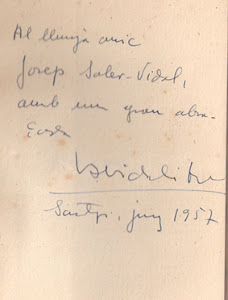 Al llunyà amic
Josep Soler-Vidal,
amb una gran abra-
çada
juny 1957